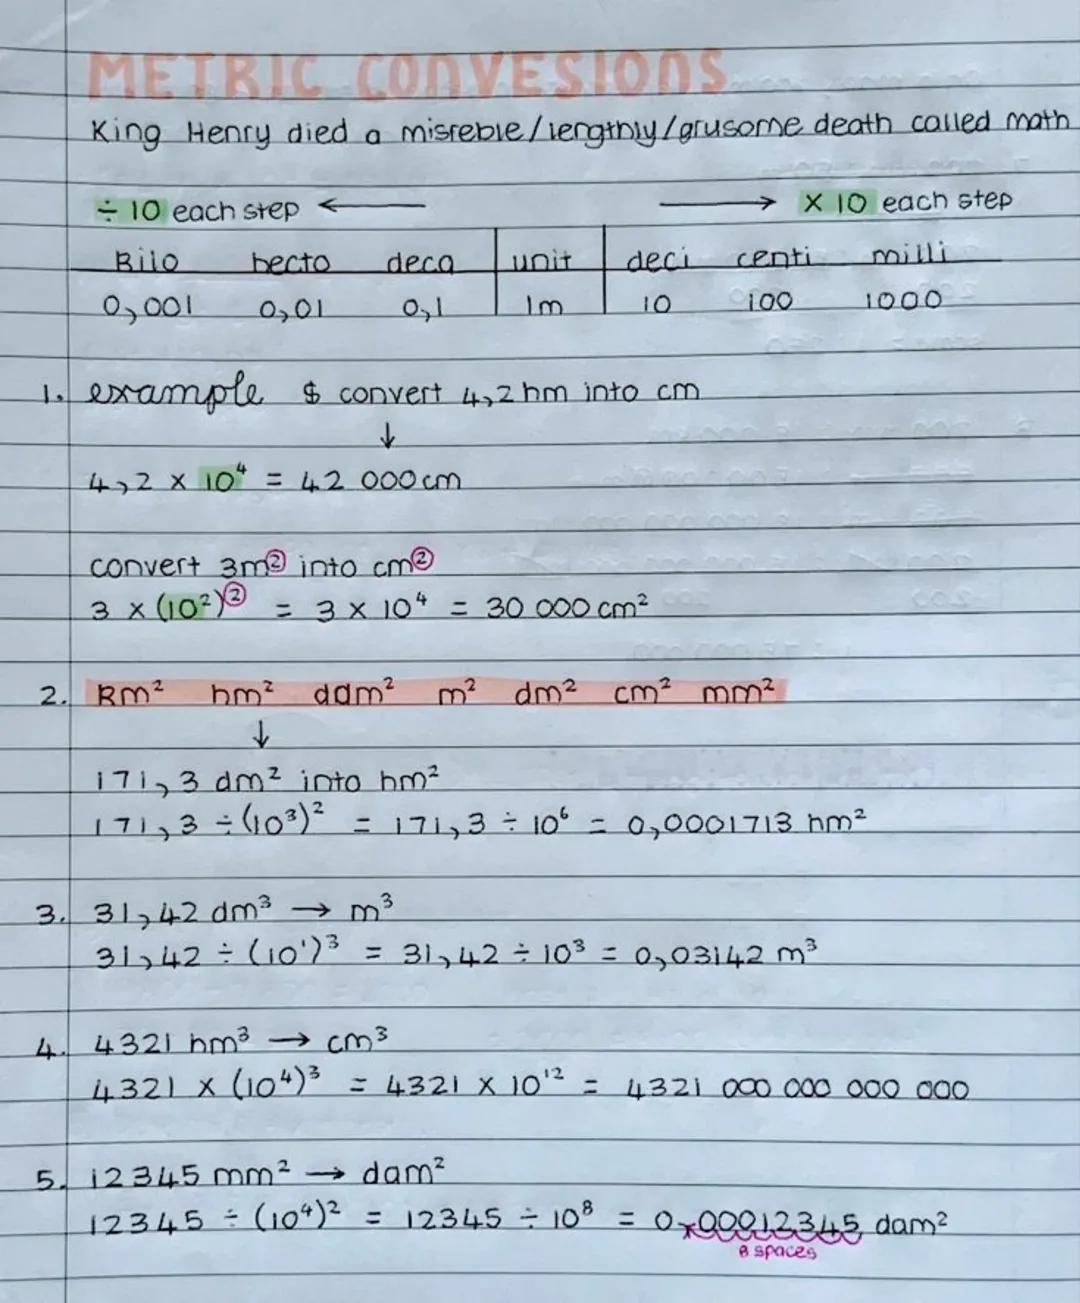 METRIC CONVESIONS
King Henry died a misreble/lengthly/grusome death called math
÷ 10 each step ← → × 10 each step
Kilo hecto deca unit deci centi milli
0,001 0,01 0,1 1m 10 100 1000
1. example $ convert 4,2 hm into cm
↓
4,2 × 10⁴ = 42 000 cm
convert 3m² into cm²
3 × (10²)² = 3 × 10⁴ = 30 000 cm²
2. Km² hm² dam² m² dm² cm² mm²
↓
171,3 dm² into hm²
171,3 ÷ (10³)² = 171,3 ÷ 10⁶ = 0,0001713 hm²
3. 31,42 dm³ → m³
31,42 ÷ (10¹)³ = 31,42 ÷ 10³ = 0,03142 m³
4. 4321 hm³ → cm³
4321 × (10⁴)³ = 4321 × 10¹² = 4321 000 000 000 000
5. 12345 mm² → dam²
12345 ÷ (10⁴)² = 12345 ÷ 10⁸ = 0,00012345 dam²
8 spaces